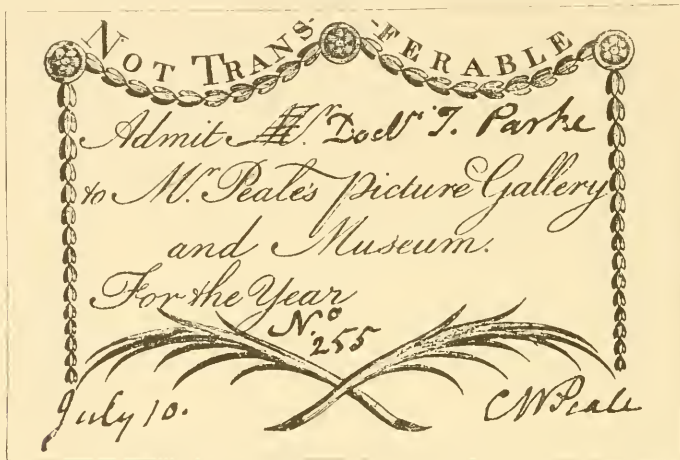 NOT TRANS-FERABLE
Admit Mr. Docr. T. Parke
to Mr. Peale's picture Gallery
and Museum.
For the Year
No.
255
July 10.
CWPeale